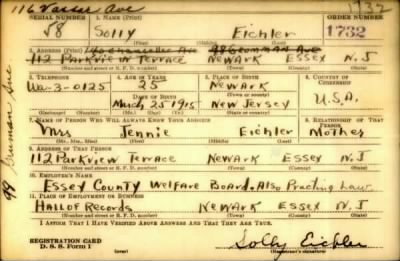 116 Vassar Ave
1732
SERIAL NUMBER 1. NAME (Print) ORDER NUMBER
58 Solly Eichler 1732
(First) (Middle) (Last)
2. ADDRESS (Print) Ave 98 Grumman Ave
112 Parkview Terrace Newark Essex N.J
(Number and street or R. F. D. number) (Town) (County) (State)
3. TELEPHONE 4. AGE IN YEARS 5. PLACE OF BIRTH 6. COUNTRY OF CITIZENSHIP
Wa-3-0125 25 Newark
DATE OF BIRTH
March 25 1915 New Jersey U.S.A.
(Exchange) (No.) (Mo.) (Day) (Yr.) (State or country)
7. NAME OF PERSON WHO WILL ALWAYS KNOW YOUR ADDRESS 8. RELATIONSHIP OF THAT PERSON
Mrs Jennie Eichler Mother
(Mr., Mrs., Miss) (First) (Middle) (Last)
9. ADDRESS OF THAT PERSON
112 Parkview Terrace Newark Essex N.J
(Number and street or R. F. D. number) (Town) (County) (State)
10. EMPLOYER'S NAME
Essex County Welfare Board. Also Practing Law
11. PLACE OF EMPLOYMENT OR BUSINESS
Hall of Records Newark Essex N.J
(Number and street or R. F. D. number) (Town) (County) (State)
I AFFIRM THAT I HAVE VERIFIED ABOVE ANSWERS AND THAT THEY ARE TRUE.
REGISTRATION CARD
D. S. S. Form 1 (over) Solly Eichler
(Registrant's signature)